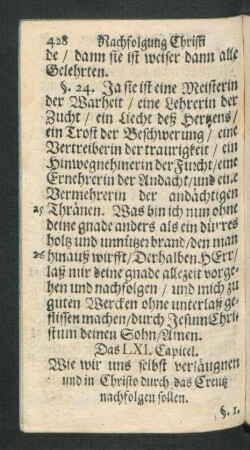 428 Nachfolgung Christi
de / dann sie ist weiser dann alle
Gelehrten.
§. 24. Ja sie ist eine Meisterin
der Warheit / eine Lehrerin der
Zucht / ein Liecht deß Hertzens /
ein Trost der Beschwerung / eine
Vertreiberin der traurigkeit / ein
Hinwegnehmerin der Furcht / eine
Ernehrerin der Andacht / und eine
Vermehrerin der andächtigen
25 Thränen. Was bin ich nun ohne
deine gnade anders als ein dürres
holtz und unnützer brand / den man
26 hinauß wirfft / Derhalben HErr /
laß mir deine gnade allezeit vorge-
hen und nachfolgen / und mich zu
guten Wercken ohne unterlaß ge-
flissen machen / durch Jesum Chri-
stum deinen Sohn / Amen.
Das LXI. Capitel.
Wie wir uns selbst verläugnen
und in Christo durch das Creutz
nachfolgen sollen.
§. 1.